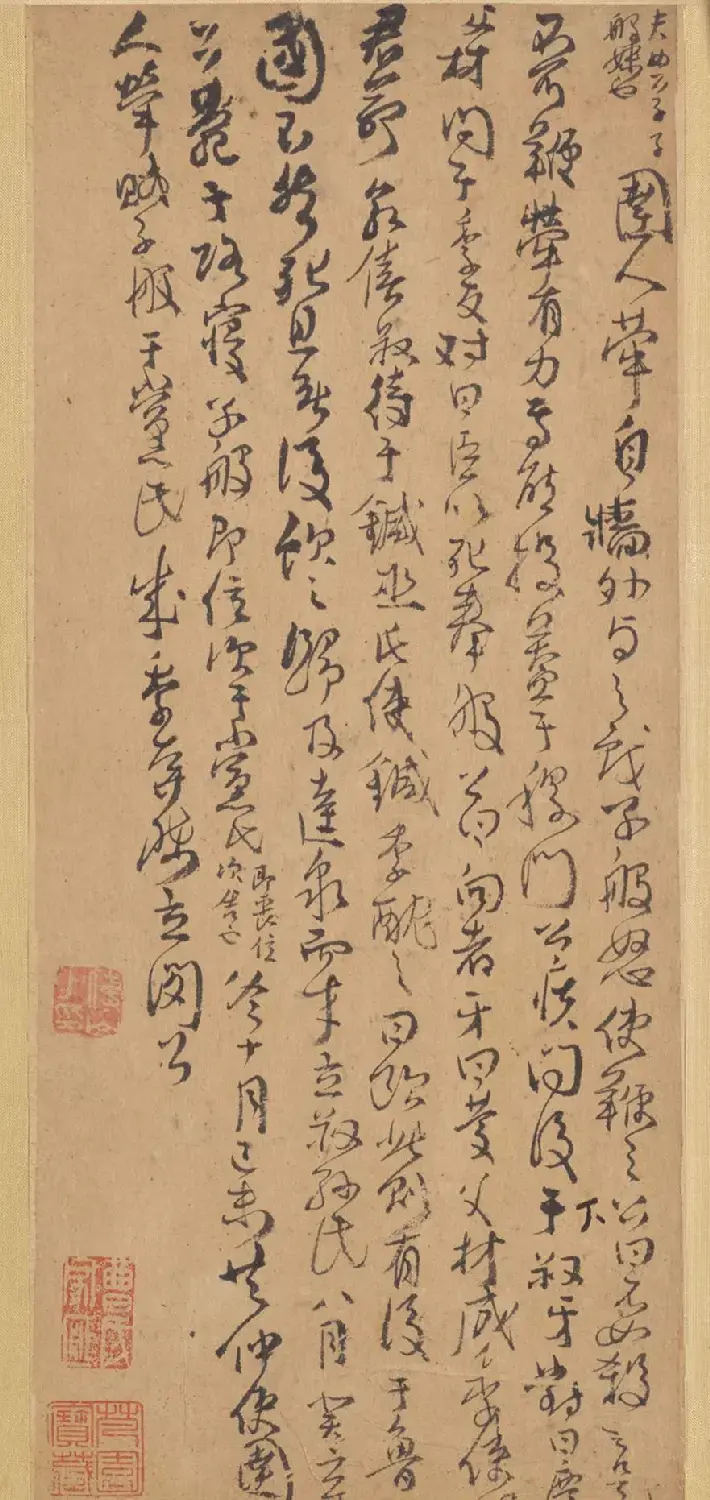 女公子子
般妹也
圉人犖自牆外与之戲子般怒使鞭之公曰不如殺之是
不可鞭犖有力焉能投蓋于稷門公疾問後于叔牙對曰慶
父材問于季友对曰臣以死奉般公曰向者牙曰慶父材成季使
君命命僖叔待于鍼巫氏使鍼季酖之曰飲此則有後于魯
國不然死且無後飲之歸及逵泉而卒立叔孫氏八月癸亥
公薨于路寢子般即位次于黨氏
即喪位
次舍也
冬十月己未共仲使圉
人犖賊子般于黨氏成季奔陳立閔公